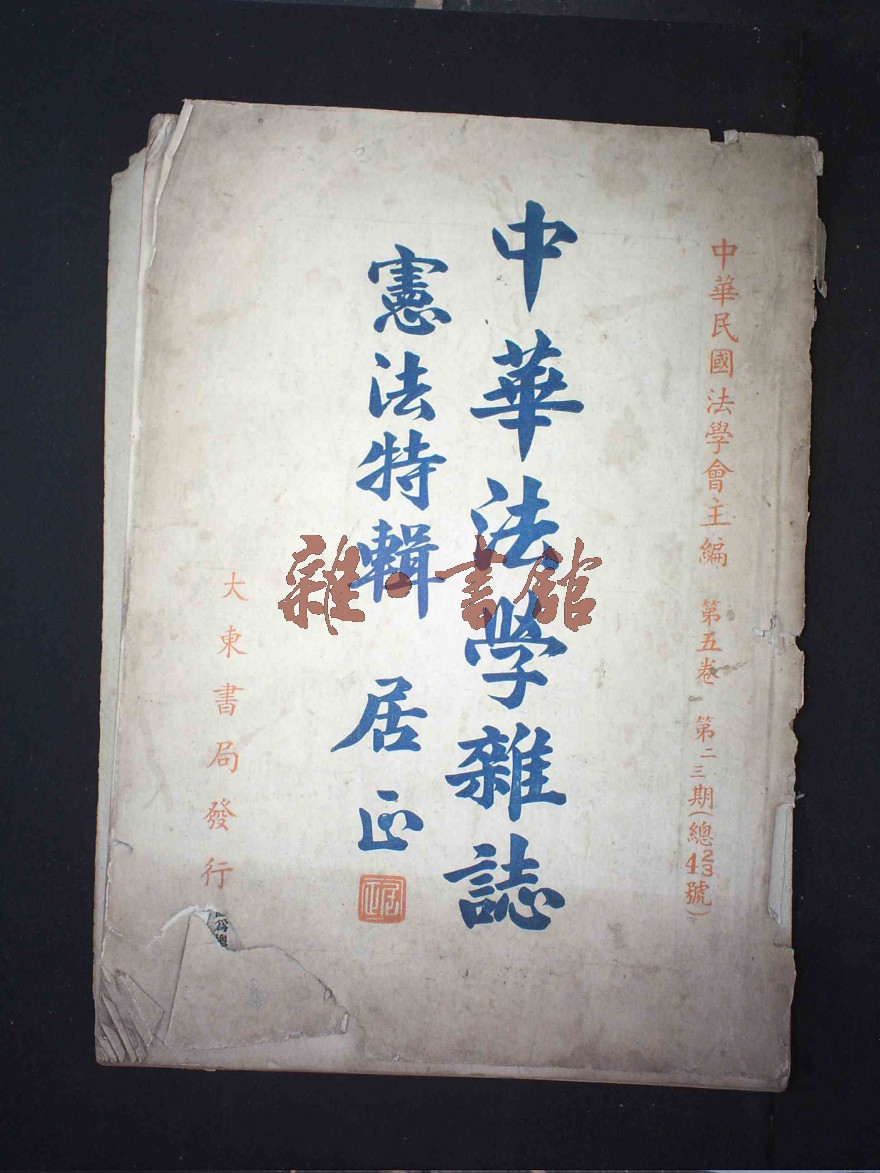 中華民國法學會主編 第五卷 第二三期(總4 2/3號)
中華法学雜誌
憲法特輯 居正
居正
大東書局發行
雜·書館